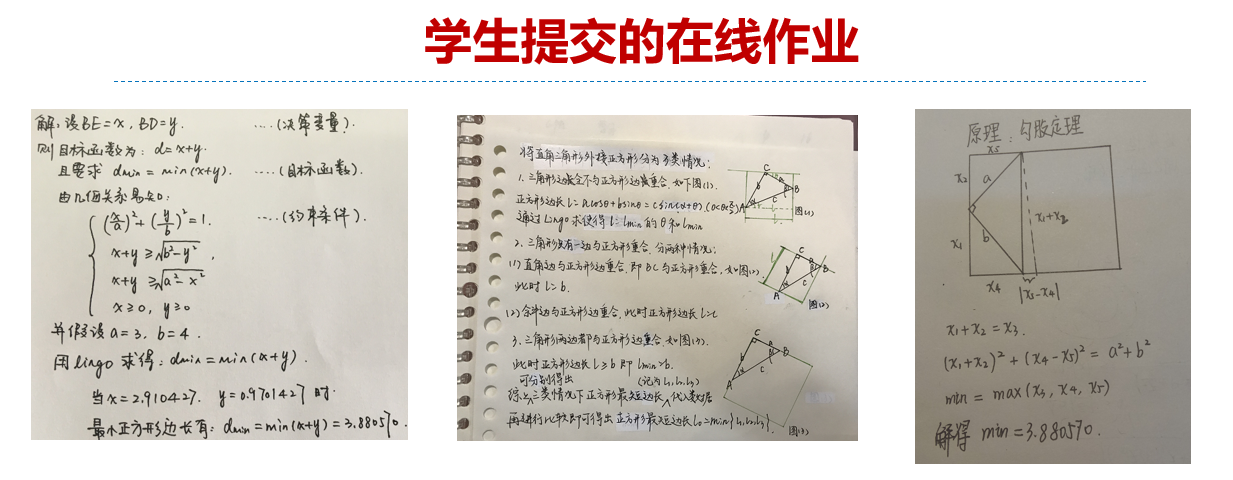 学生提交的在线作业
解:设BE=x,BD=y. ....(决策变量).
则目标函数为:d=x+y.
且要求 dmin=min(x+y). ....(目标函数).
由几何关系易知:
(x/a)²+(y/b)²=1. ....(约束条件).
x+y≥√b²-y²,
x+y≥√a²-x²
x≥0, y≥0
并假设a=3, b=4.
用lingo求得:dmin=min(x+y).
当x=2.910427. y=0.9701427时.
最小正方形边长有:dmin=min(x+y)=3.880570.
将直角三角形外接正方形分为3类情况:
1.三角形边完全不与正方形边重合.如下图(1).
正方形边长L=acosθ+bsinθ=csin(α+θ).(0<θ<π/2)
通过Lingo求使得L=Lmin的θ和Lmin
C
b
a
B
A
c
图(1)
2.三角形只有一边与正方形重合.分两种情况:
(1)直角边与正方形边重合,即BC与正方形重合.如图(2).
此时L=b.
C
B
A
c
图(2)
(2)斜边与正方形边重合,此时正方形边长L=c
3.三角形两边都与正方形边重合.如图(3).
此时正方形边长L≥b即Lmin=b.
可分别得出 (记为L₁,L₂,L₃)
综上三类情况下正方形最短边长,
再进行比较即可得出正方形最短边长L₀=min{L₁,L₂,L₃}.
C
b
a
B
A
c
图(3)
原理:勾股定理
x5
x2
a
x1+x2
x1
b
x4
|x5-x4|
x1+x2=x3.
(x1+x2)²+(x4-x5)²=a²+b²
min=max(x3,x4,x5)
解得 min=3.880570.